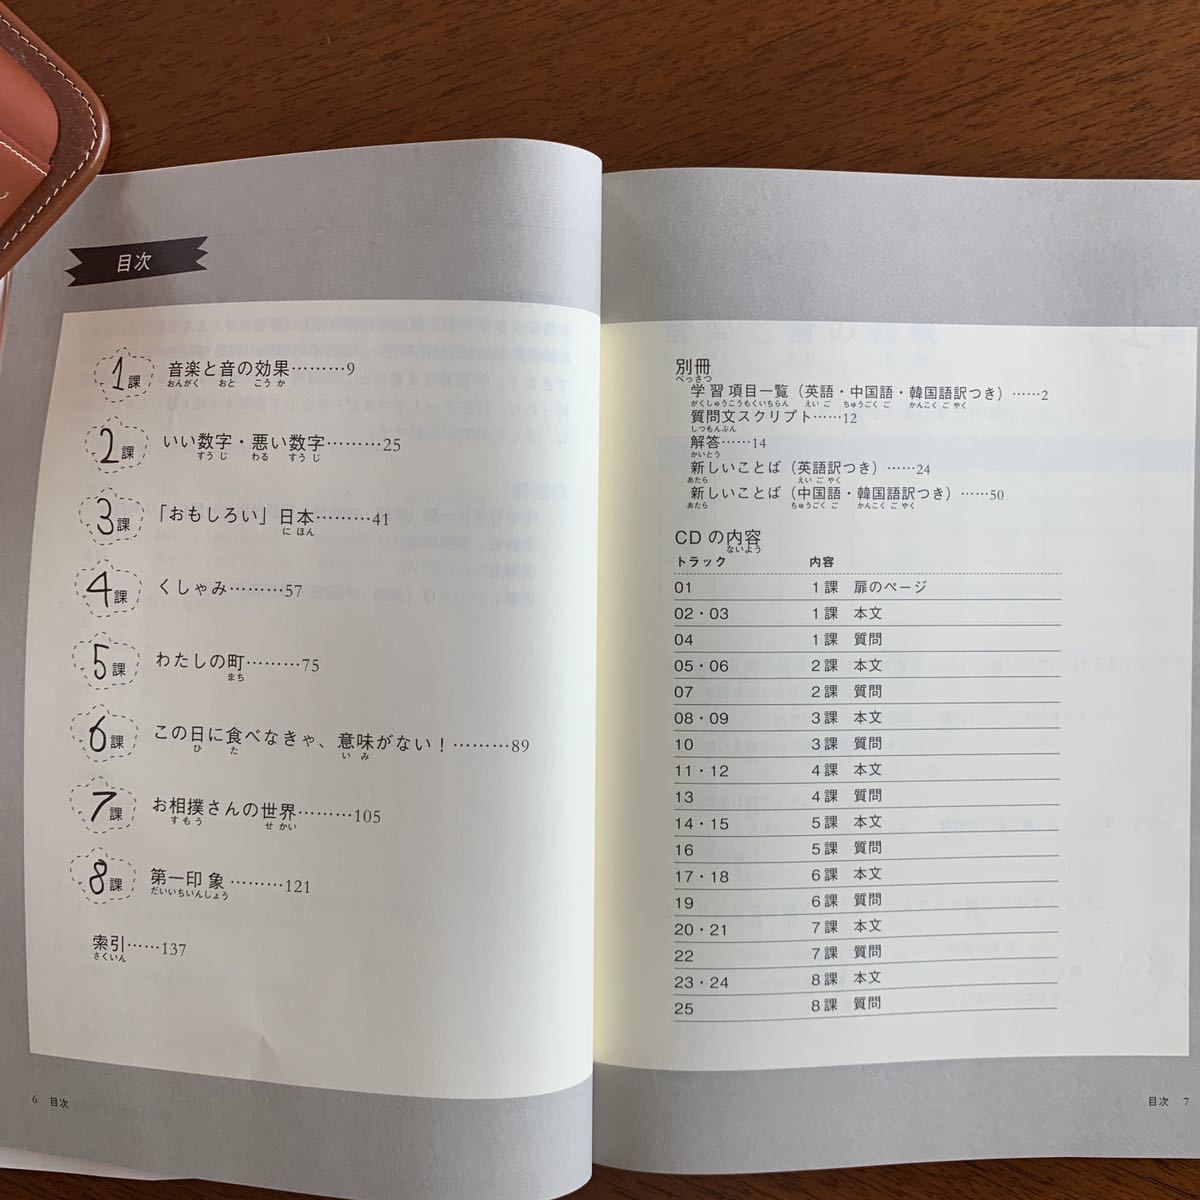 目次
1課 音楽と音の効果………9
おんがく おと こうか
2課 いい数字・悪い数字………25
すうじ わる すうじ
3課 「おもしろい」日本………41
にほん
4課 くしゃみ………57
5課 わたしの町………75
まち
6課 この日に食べなきゃ、意味がない！………89
ひ た いみ
7課 お相撲さんの世界………105
すもう せかい
8課 第一印象………121
だいいちいんしょう
索引……137
さくいん
6 目次
別冊
べっさつ
学習項目一覧（英語・中国語・韓国語訳つき）……2
がくしゅうこうもくいちらん えいご ちゅうごくご かんこくごやく
質問文スクリプト……12
しつもんぶん
解答……14
かいとう
新しいことば（英語訳つき）……24
あたら えいごやく
新しいことば（中国語・韓国語訳つき）……50
あたら ちゅうごくご かんこくごやく
CDの内容
ないよう
トラック 内容
01 1課 扉のページ
02・03 1課 本文
04 1課 質問
05・06 2課 本文
07 2課 質問
08・09 3課 本文
10 3課 質問
11・12 4課 本文
13 4課 質問
14・15 5課 本文
16 5課 質問
17・18 6課 本文
19 6課 質問
20・21 7課 本文
22 7課 質問
23・24 8課 本文
25 8課 質問
目次 7